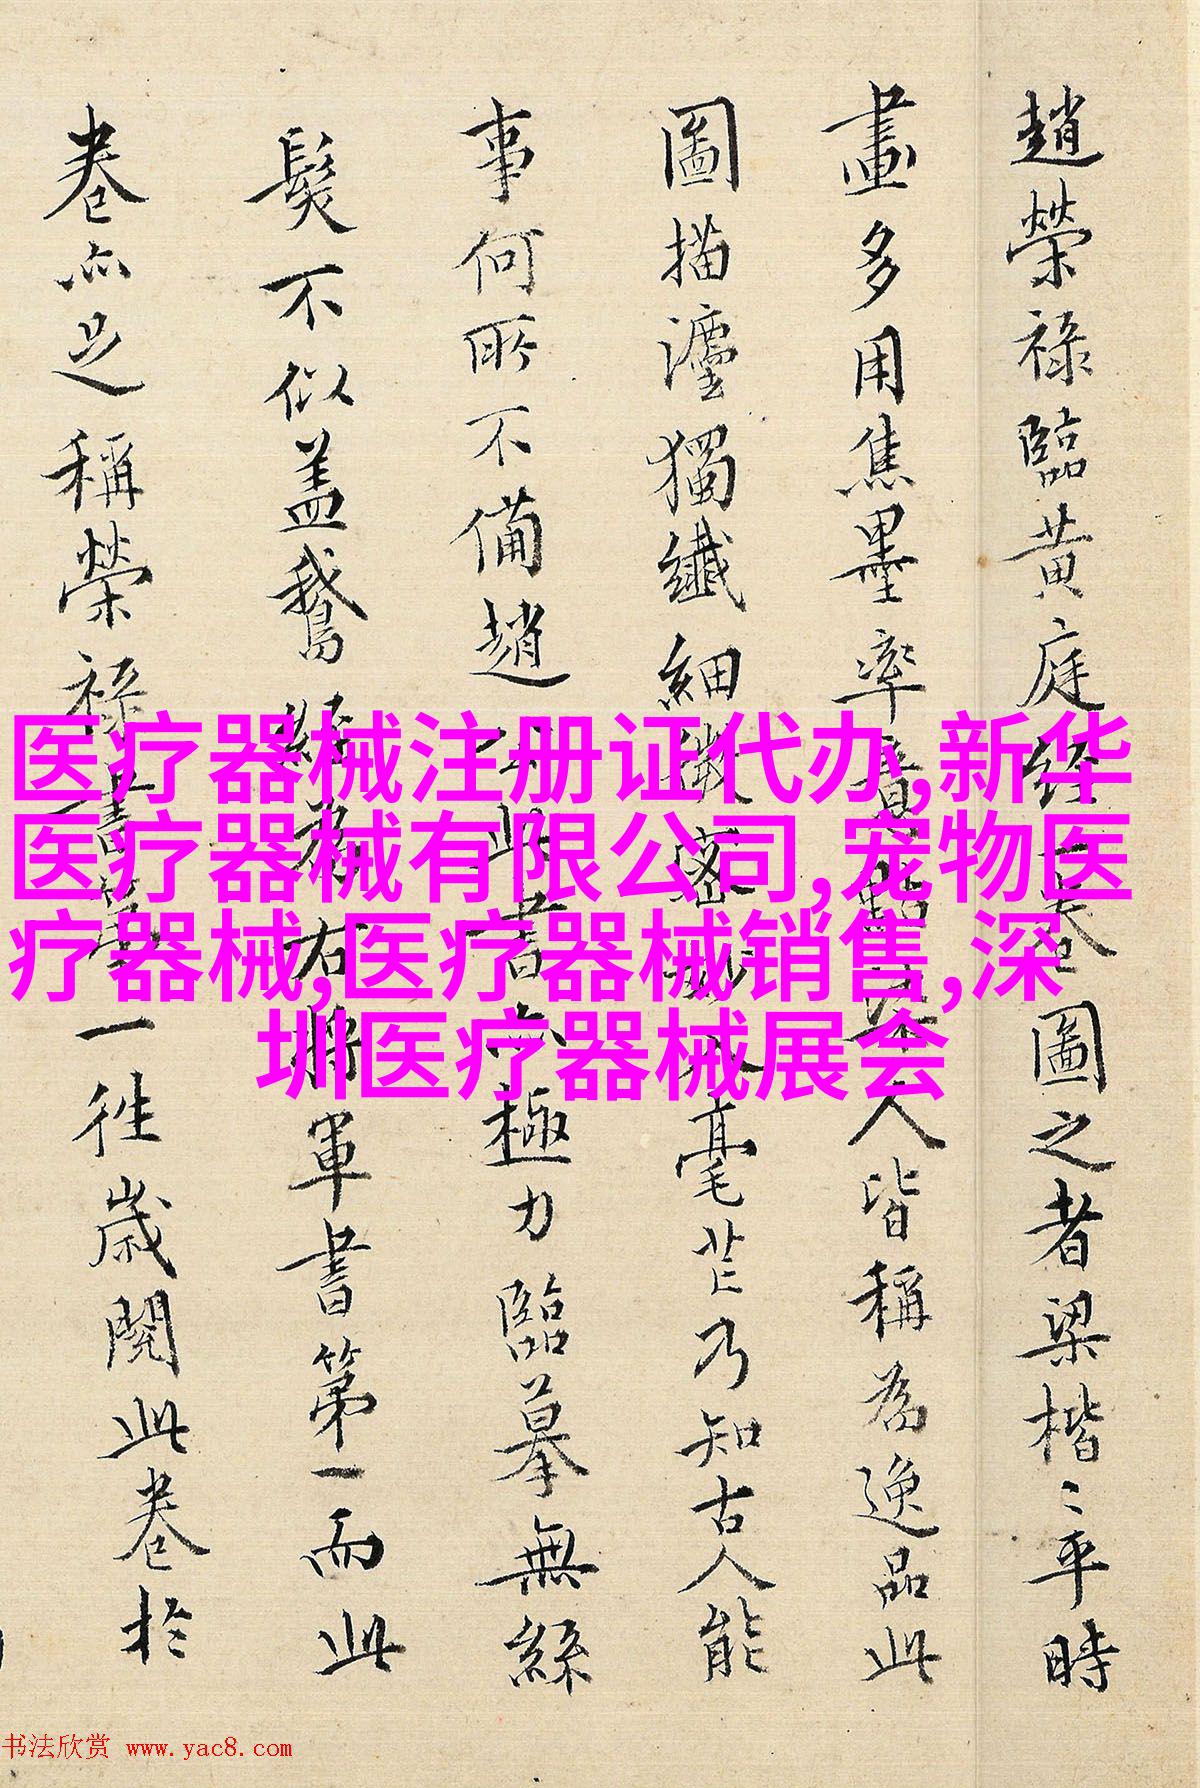 趙榮祿臨黃庭經一卷圖之者梁楷〻平時
畫多用焦墨率意點染人皆稱為逸品此
圖描灋獨纖細微密毫芒乃知古人能
事何所不備趙公此書亦極力臨摹無絲
髮不似蓋鵝經為右將軍書第一而此
卷亦足稱榮祿書第一往歲閱此卷於
医疗器械注册证代办,新华
医疗器械有限公司,宠物医
疗器械,医疗器械销售,深
圳医疗器械展会
书法欣赏 www.yac8.com